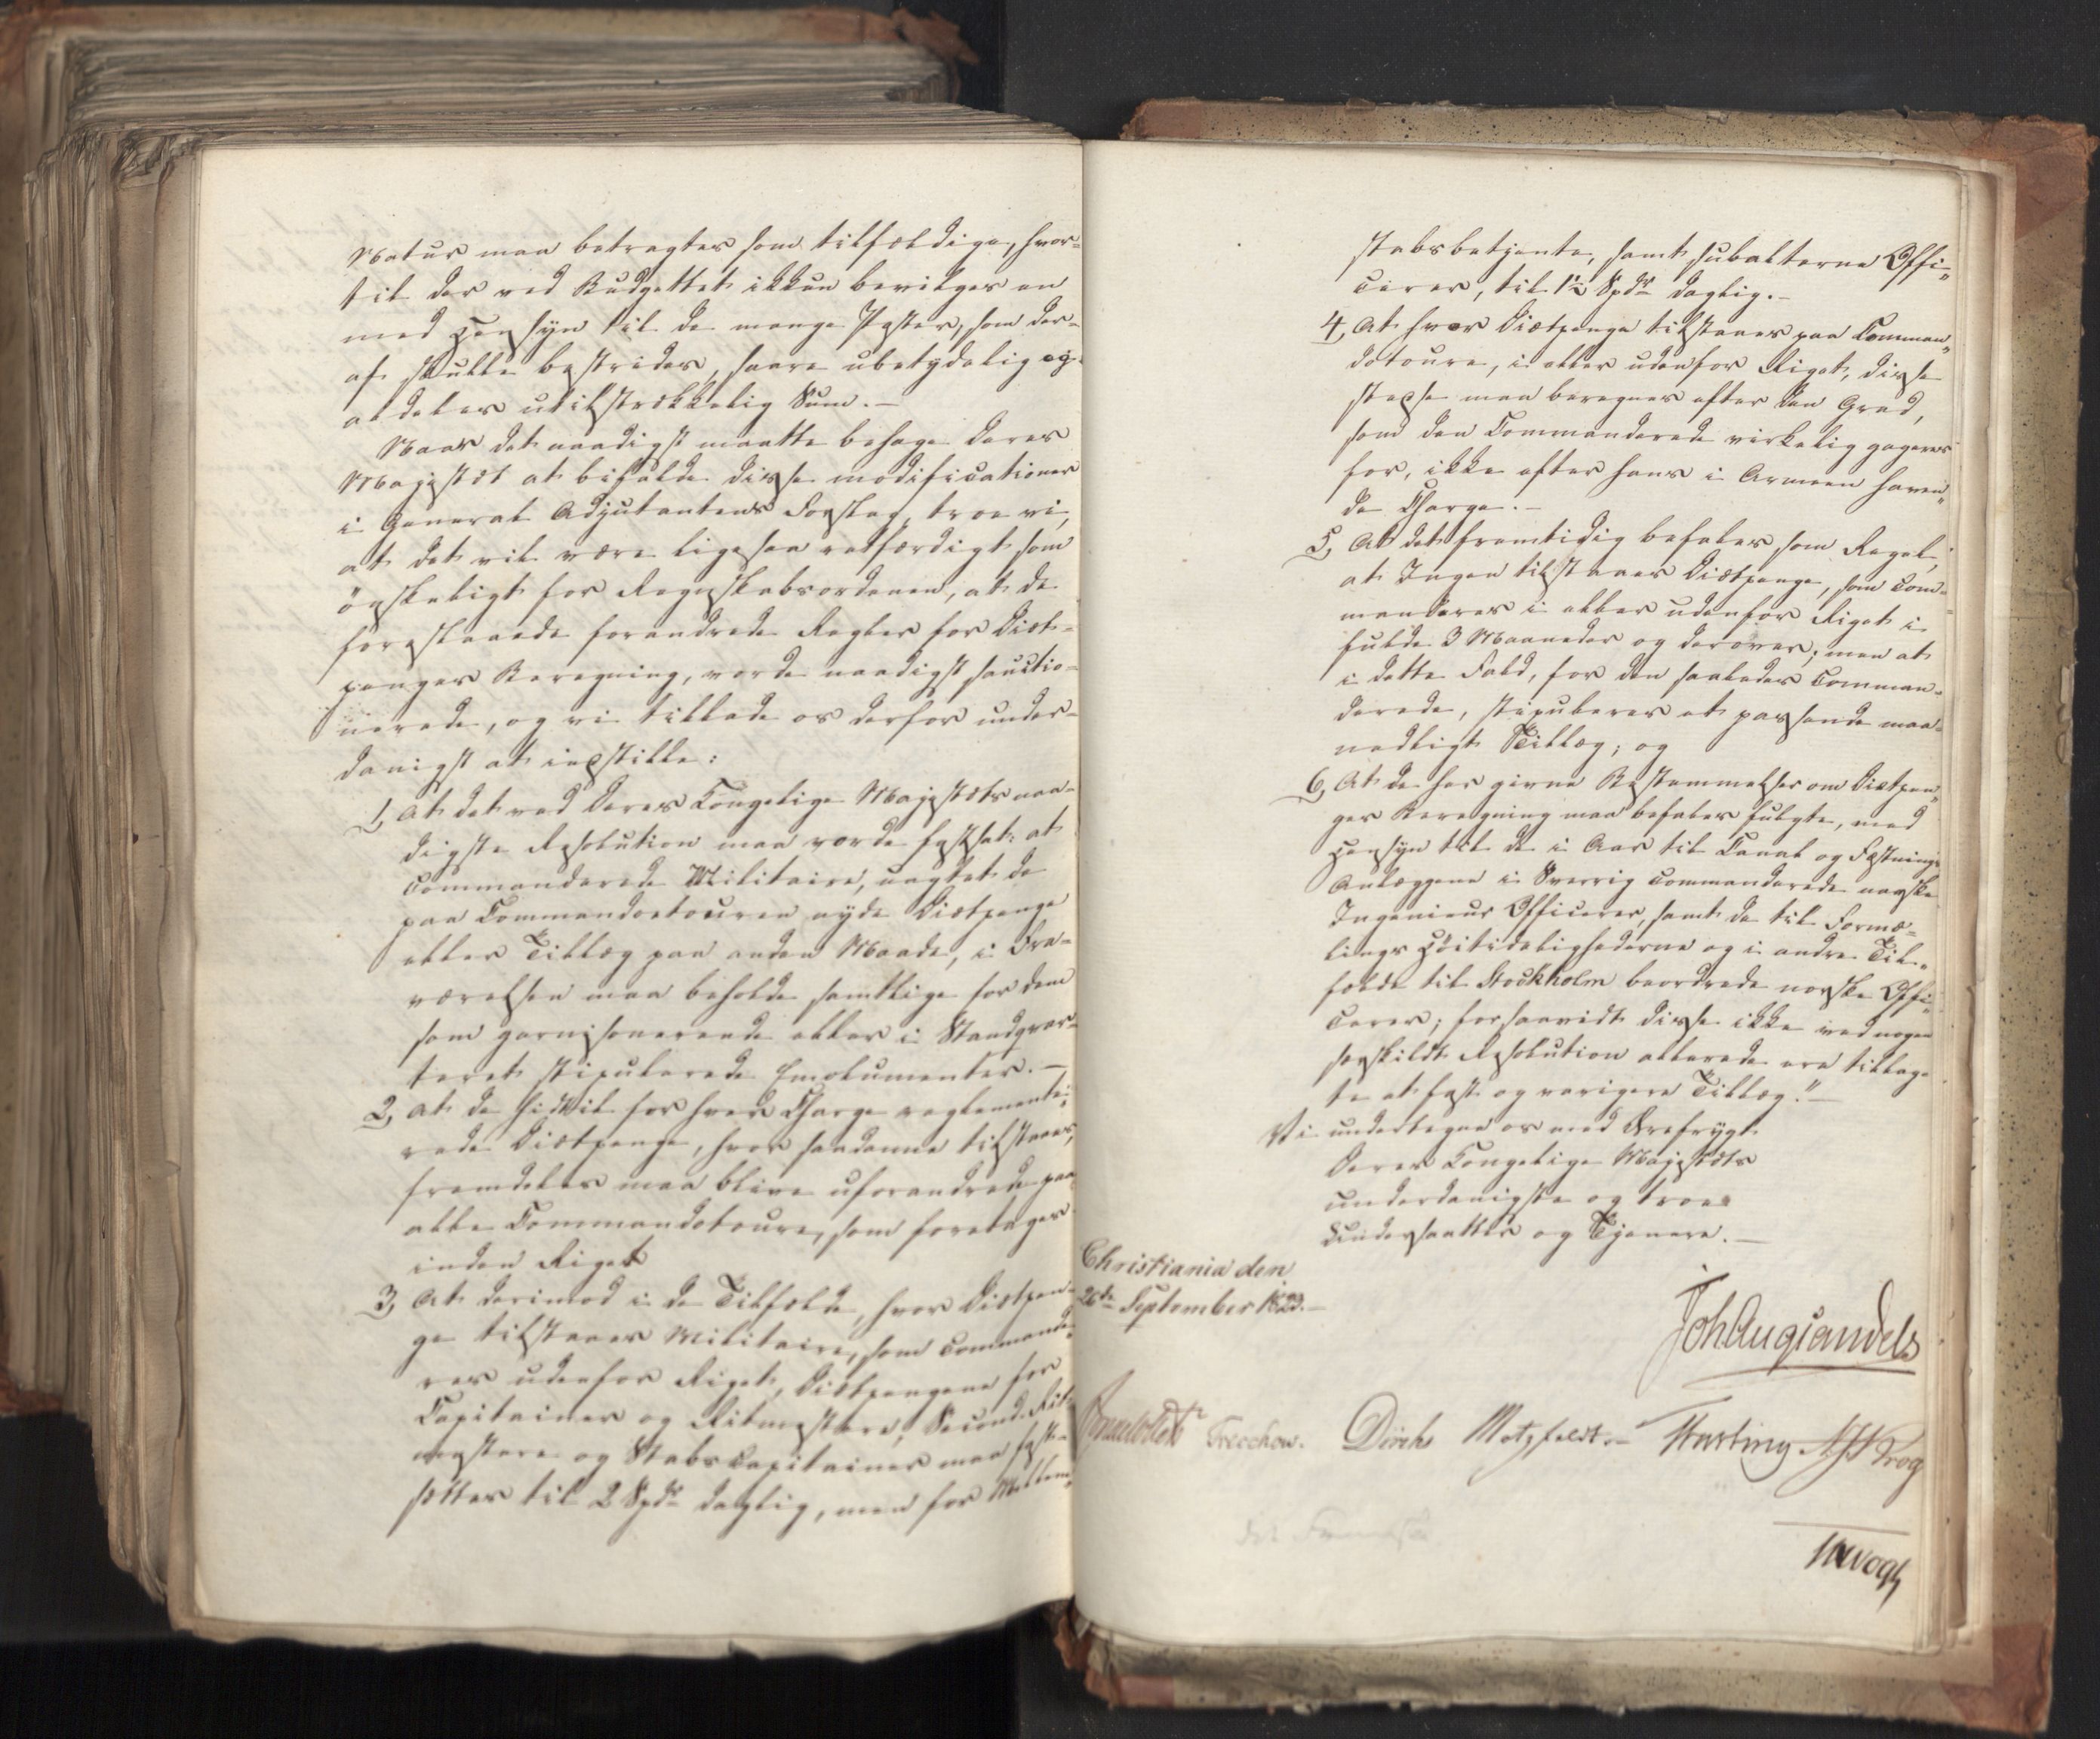 Natur maa betragtes som tilfældige, hvor-
til der ved Budgettet ikkun bevilges en
med Hensyn til de mange Poster, som der-
af skulle bestrides, saare ubetydelig og
aldeles utilstrækkelig Sum.—
Naar det naadigst maatte behage Deres
Majestæt at bifalde disse modificationer
i General Adjutantens Forslag, troe vi,
at det vil være ligesaa retfærdigt som
ønskeligt for Regnskabsordenen, at de
foreslaaede forandrede Regler for Diæt-
penges Beregning, vorde naadigst sanctio-
nerede, og vi tillade os derfor under-
danigst at indstille:
1, At det ved Deres Kongelige Majestæts naa-
digste Resolution maa vorde fastsat: at
commanderede Militaire, uagtet de
paa Commandoetouren nyde Diætpenge
eller Tillæg paa anden Maade, i Fra-
værelsen maa beholde samtlige for dem
som garnisonerende eller i Standqvar-
teret stipulerede Emolumenter.—
2, at de hidtil for hver Charge reglemente-
rede Diætpenge, hvor saadanne tilstaaes,
fremdeles maa blive uforandrede paa
alle Commandotoure, som foretages
inden Riget
3, At derimod i de Tilfælde, hvor Diætpen-
ge tilstaaes Militaire, som commande-
res udenfor Riget, Diætpengene for
Capitainer og Ritmestere, Second-Rit-
mestere og Stabscapitainer maa fast-
sættes til 2 Spdr daglig, men for Mellem-
stabsbetjente, samt subalterne Offi-
cerer, til 1½ Spdr daglig.—
4, At hvor Diætpenge tilstaaes paa Comman-
dotoure, i eller udenfor Riget, disse
stedse maa beregnes efter den Grad,
som den Commanderede virkelig gageres
for, ikke efter hans i Armeen haven-
de Charge.—
5, At det fremtidig befales som Regel,
at Ingen tilstaaes Diætpenge, som com-
manderes i eller udenfor Riget i
fulde 3 Maaneder og derover; men at
i dette Fald, for den saaledes Comman-
derede, stipuleres et passende maa-
nedligt Tillæg; og
6, At de her givne Bestemmelser om Diætpen-
ges Beregning maa befales fulgte, med
Hensyn til de i Aar til Canal og Fæstnings
Anlæggene i Sverrig commanderede norske
Ingenieur Officerer, samt de til Formæ-
lings Høitidelighederne og i andre Til-
fælde til Stockholm beordrede norske Offi-
cerer; forsaavidt disse ikke ved nogen
særskildt Resolution allerede ere tillag-
te et fast og varigere Tillæg."—
Vi undertegne os med Ærefrygt
Deres Kongelige Majestæts
underdanigste og troe
Undersaatter og Tjenere.—
Christiania den
26de September 1823.—
Joh Aug Sandels
Treschow. Diriks Motzfeldt. Hasting
Vogt